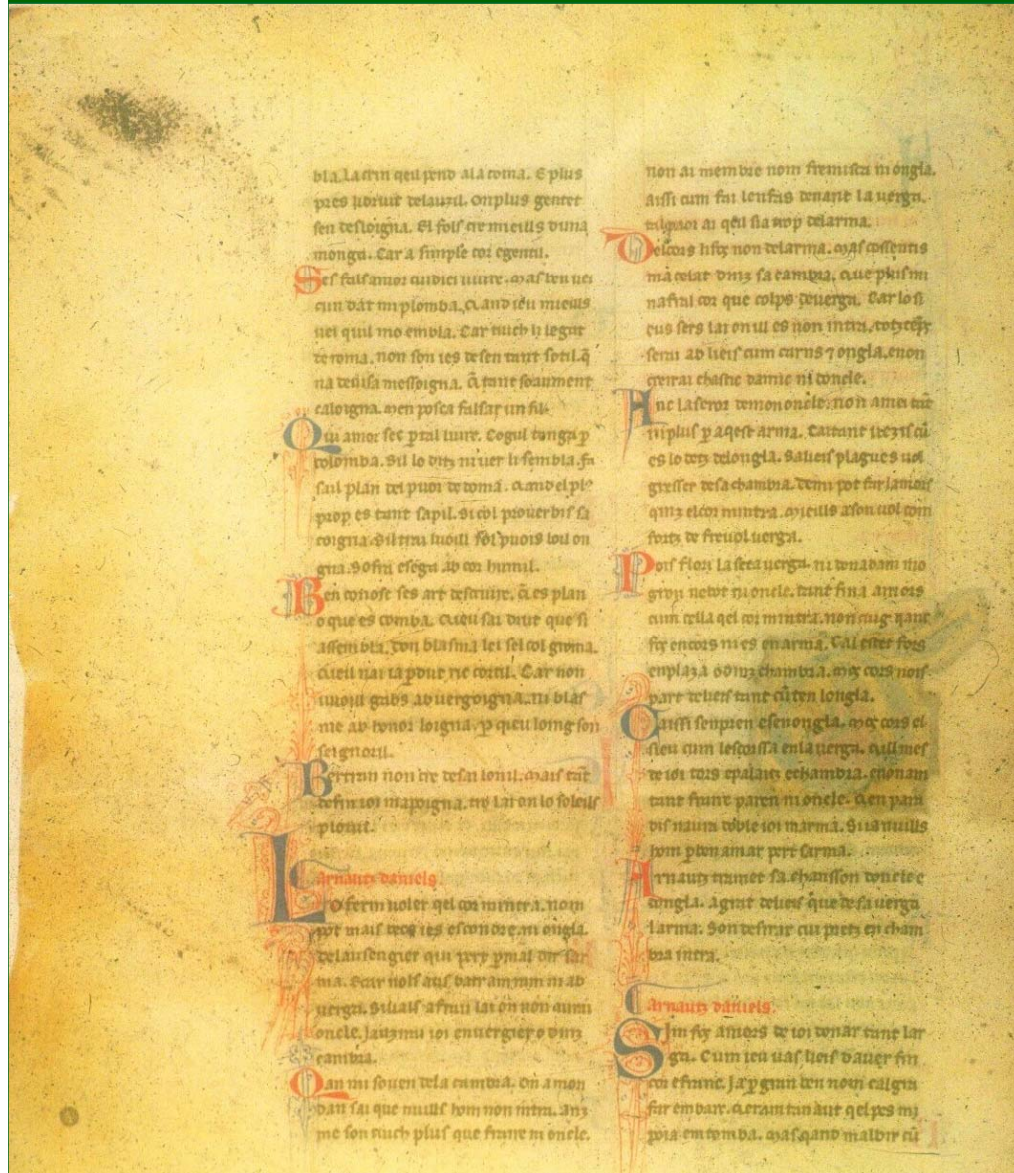 bla. La crin qeil pend ala coma. E plus
pres li bruit delauzil. On plus gentet
sen desloigna. El fols cre mieills duna
monga. Car a simple cor egentil.
Ses fals amor cuidiei viure. Mas ben vei
cun dat mi plomba. Quand ieu mieills
vei quil mo embla. Car tuich li legat
de roma. non son ies de sen tant sotil. q̃
na devisa messoigna. Q̃ tant soaument
caloigna. men posca falsar un fil.
Qui amor sec p̃ tal liure. Cogul tenga p̃
colomba. Sil lo ditz ni ver li sembla. fa
sail plan del puoi de doma. Quand el plꝰ
prop es tant sapil. Si col proverbis sa
coigna. Sil trai luoill sol puois loil on
gna. Sofra esega ab cor humil.
Ben conosc ses art descriure. Q̃ es plan
o que es comba. Queu sai drut que si
assembla. Don blasma lei sel col groma.
Queil nai ia p̃dut ric cortil. Car non
vuoill gabs ab vergoigna. ni blas
me ab honor loigna. p̃ queu loing son
seignoril.
Bertran non cre de sai lo nil. Mais tāt
de fin ioi mapoigna. tro lai on lo soleils
plouil.
Arnautz daniels
Lo ferm voler qel cor mintra. nom
pot mais becs ies escondre. ni ongla.
de lausengier qui pert p̃ mal dir sar
ma. E car nols aus batr am ram ni ab
verga. Sivals afrau lai on non aurai
oncle. Iauzirai ioi en vergier o dinz
cambra.
Qan mi soven dela cambra. On a mon
dan sai que nuills hom non intra. anz
me son tuich plus que fraire ni oncle.
non ai membre nom fremisca ni ongla.
aissi cum fai lenfas denant la verga.
tal paor ai qeil sia trop de larma.
Del cors li fos non de larma. Mas cossentis
ma celat dinz sa cambra. Que plus mi
nafral cor que colps de verga. Car lo si
eus sers lai on ill es non intra. totz tēps
serai ab lieis cum carns ⁊ ongla. e non
creirai chastic damic ni doncle.
Anc la seror de mon oncle. non amei tāt
ni plus p̃ aqest arma. Caitant vezis cū
es lo detz de longla. Sa lieis plagues vol
gresser de sa chambra. De mi pot far lamors
qinz el cor mintra. Mieills a son vol com
fortz de frevol verga.
Pois flori la seca verga. ni den adam mo
gron nebot ni oncle. tant fina amors
cum cella qel cor mintra. non cug qant
fos en cors ni es en arma. Cal estet fors
en plaza o dinz chambra. Mos cors nois
part de lieis tant cū ten longla.
Caissi senpren e senongla. Mos cors el
sieu cum lescorssa en la verga. Qill mes
de ioi tors e palaitz e chambra. e non am
tant fraire paren ni oncle. Qen para
dis naura doble ioi marma. Si ia nuills
hom p̃ ben amar pert sarma.
Arnautz tramet sa chansson doncle e
dongla. a grat de lieis que de sa verga
larma. Son desirat cui pretz en cham
bra intra.
Arnautz daniels.
Sim fos amors de ioi donar tant lar
ga. Cum ieu vas lieis daver fin
cor e franc. Ia p̃ gran ben nom calgra
far embarc. Qeram tan aut qel pes mi
poia em tomba. Mas qand malbir cū